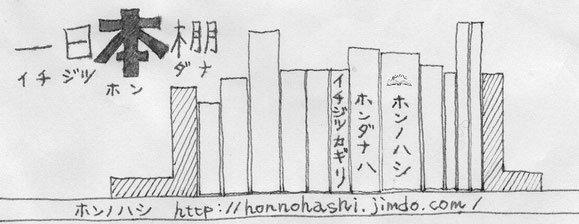 一日本棚
イチジツ ホン ダナ
イチジツカギリ
ホンダナハ
ホンノハシ
ホンノハシ http://honnohashi.jimdo.com/